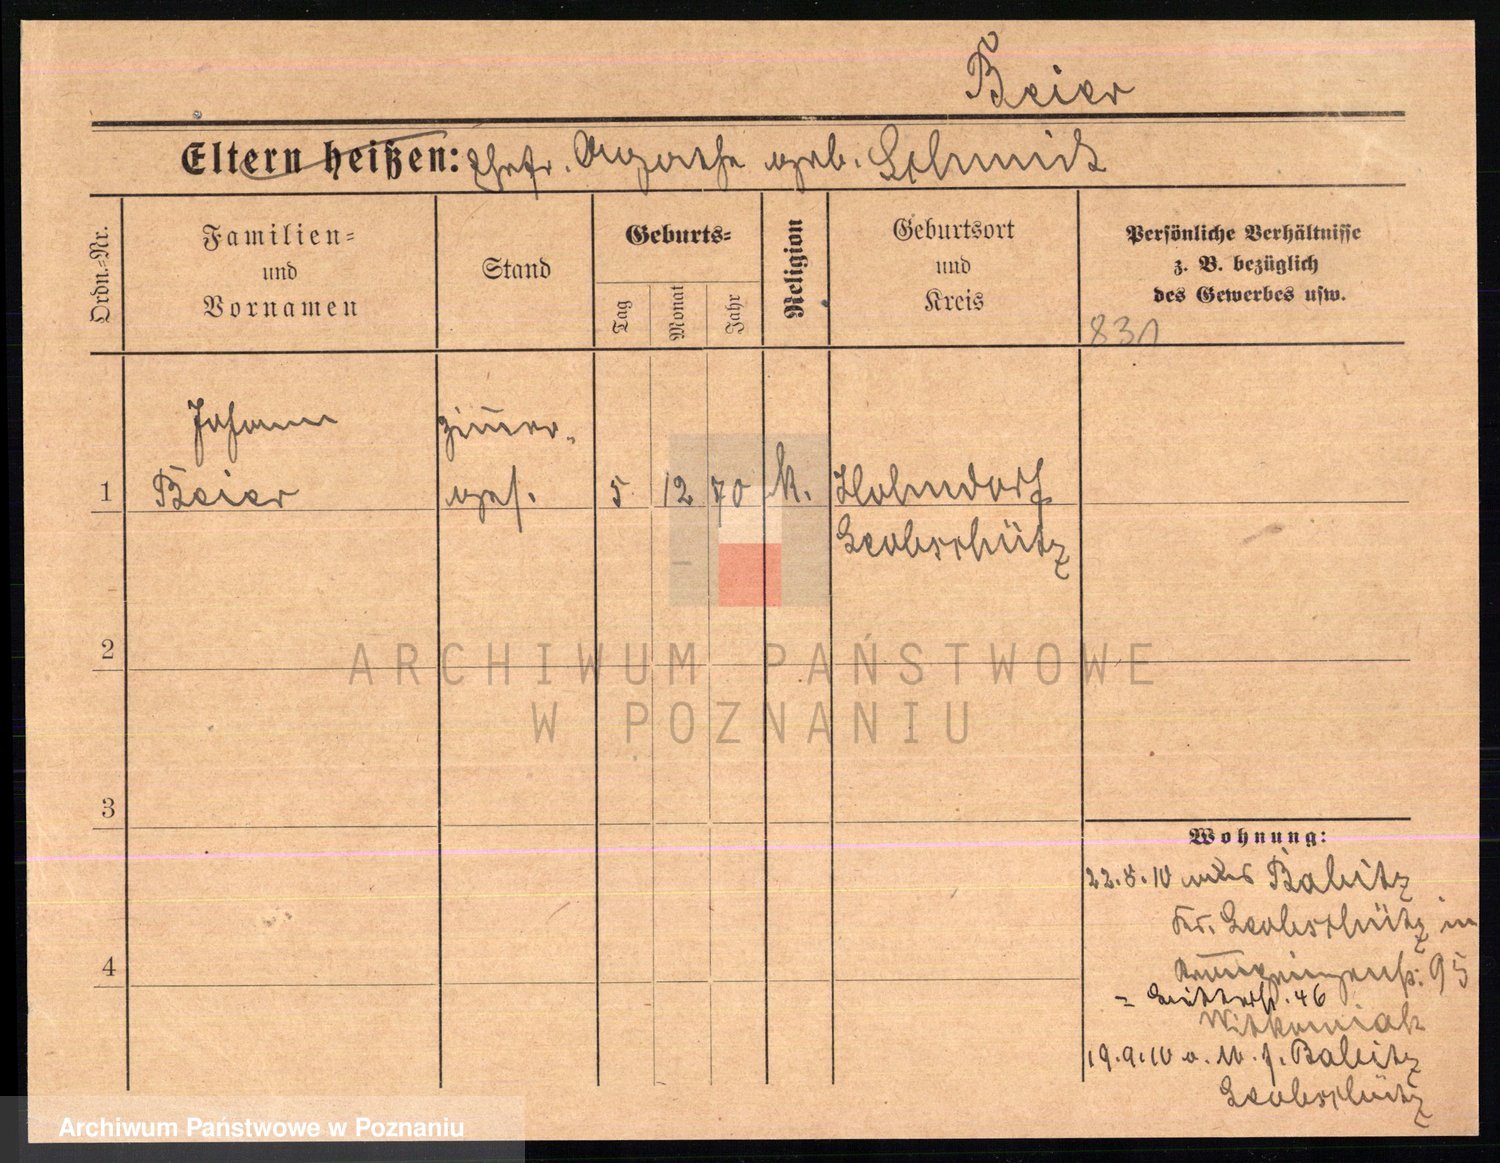 Beier
Eltern heißen: Ehefr. Agathe geb. Schmidt
Ordn.=Nr.
Familien=
und
Vornamen
Stand
Geburts=
Tag
Monat
Jahr
Religion
Geburtsort
und
Kreis
Persönliche Verhältnisse
z. B. bezüglich
des Gewerbes usw.
831
Johann
Beier
Zim̄er-
ges.
1
5
12
70
k.
Hohndorf
Leobschütz
2
3
4
Wohnung:
22.8.10 aus Babitz
Kr. Leobschütz in
95
46
Witkowiak
19.9.10 Babitz
Leobschütz
ARCHIWUM PAŃSTWOWE
W POZNANIU
Archiwum Państwowe w Poznaniu